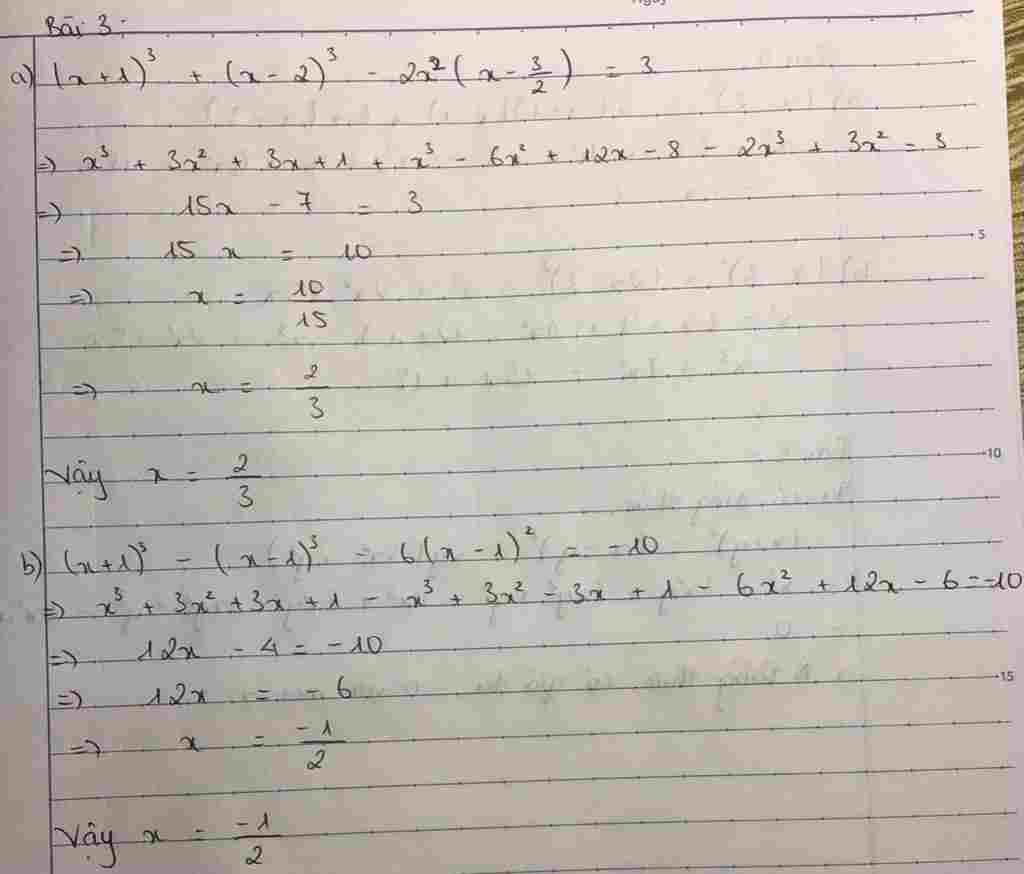 Bài 3:
a) (x+1)³ + (x-2)³ - 2x²(x-3/2) = 3
=> x³ + 3x² + 3x+1 + x³ - 6x² + 12x - 8 - 2x³ + 3x² = 3
=> 15x - 7 = 3
5
=> 15 x = 10
=> x = 10/15
=> x = 2/3
10
Vậy x = 2/3
b) (x+1)³ - (x-1)³ - 6(x-1)² = -10
=> x³ + 3x² + 3x + 1 - x³ + 3x² - 3x + 1 - 6x² + 12x - 6 = -10
=> 12x - 4 = -10
=> 12x = -6
15
=> x = -1/2
Vậy x = -1/2